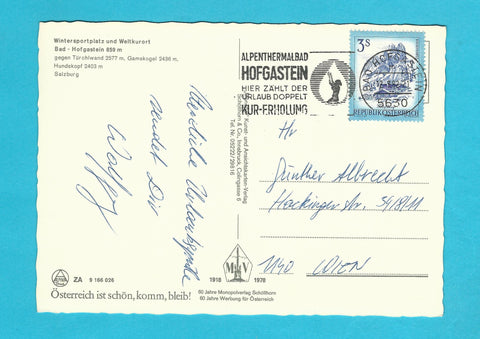 Wintersportplatz und Weltkurort
Bad - Hofgastein 859 m
gegen Türchlwand 2577 m, Gamskogel 2436 m,
Hundskopf 2403 m
Salzburg
Herzliche Urlaubsgrüße
sendet Dir
Wolfgang
ALPENTHERMALBAD
HOFGASTEIN
HIER ZÄHLT DER
URLAUB DOPPELT
KUR-ERHOLUNG
3S
REPUBLIK ÖSTERREICH
BAD HOFGASTEIN
5630
Kunst- und Ansichtskarten-Verlag
Schöllhorn & Co., Innsbruck,
Tel. Nr. 05222/29816
Hr
Günther Albrecht
Hackinger Str. 54/8/11
1140 WIEN
ZA 9 166 026
Österreich ist schön, komm, bleib!
M V
1918 1978
60 Jahre Monopolverlag Schöllhorn
60 Jahre Werbung für Österreich